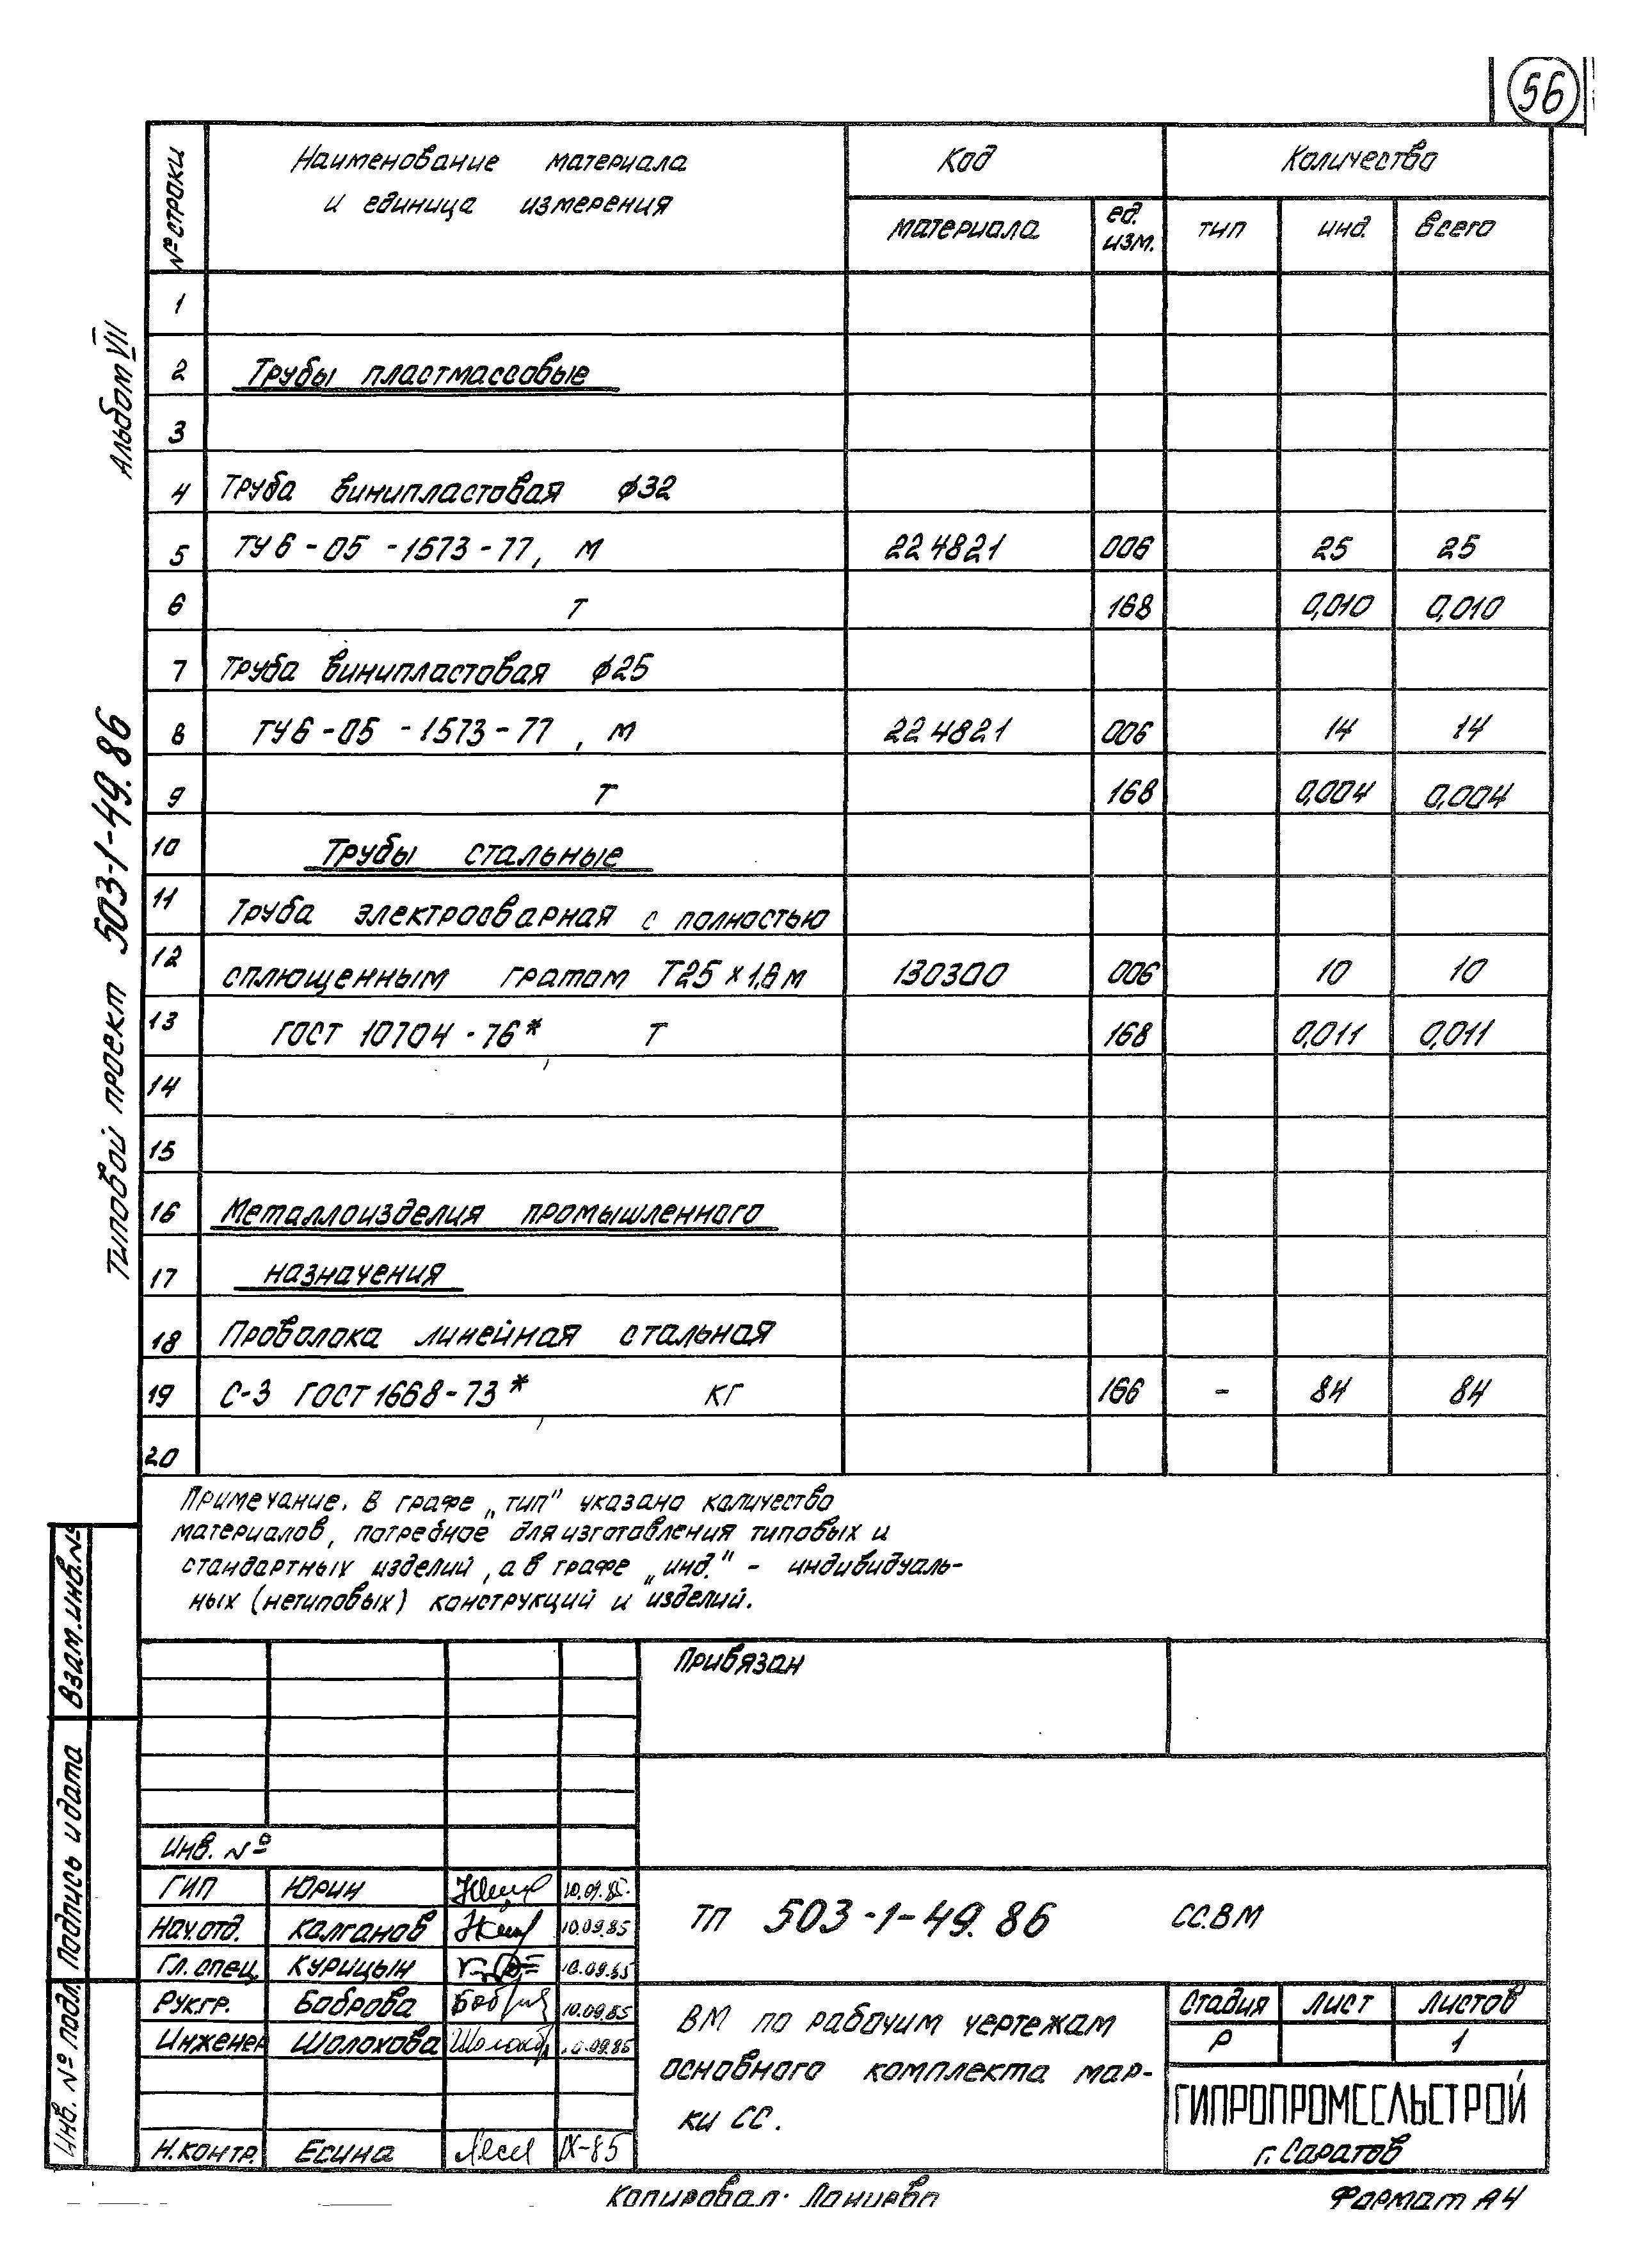 56
№ строки
Наименование материала
и единица измерения
Код
Количество
материала
ед. изм.
тип
инд.
всего
1
2 Трубы пластмассовые
3
4 Труба винипластовая ф32
5 ТУ6-05-1573-77, м 224821 006 25 25
6 т 168 0,010 0,010
7 Труба винипластовая ф25
8 ТУ6-05-1573-77, м 224821 006 14 14
9 т 168 0,004 0,004
10 Трубы стальные
11 Труба электросварная с полностью
12 сплющенным гратом Т25х1,6 м 130300 006 10 10
13 ГОСТ 10704-76* т 168 0,011 0,011
14
15
16 Металлоизделия промышленного
17 назначения
18 Проволока линейная стальная
19 С-3 ГОСТ 1668-73* кг 166 - 84 84
20
Примечание. В графе „тип" указано количество
материалов, потребное для изготовления типовых и
стандартных изделий, а в графе „инд." - индивидуаль-
ных (нетиповых) конструкций и изделий.
Альбом VII
Типовой проект 503-1-49.86
Взам.инв.№
Подпись и дата
Инв. № подл.
Привязан
Инв. №
ГИП Юрин 10.09.85
Нач.отд. Калганов 10.09.85
Гл.спец. Курицын 10.09.85
Рук.гр. Боброва 10.09.85
Инженер Шолохова 10.09.85
Н.контр. Есина IX-85
ТП 503-1-49.86 СС.ВМ
ВМ по рабочим чертежам
основного комплекта мар-
ки СС.
Стадия Лист Листов
Р 1
ГИПРОПРОМСЕЛЬСТРОЙ
г. Саратов
Копировал
Формат А4